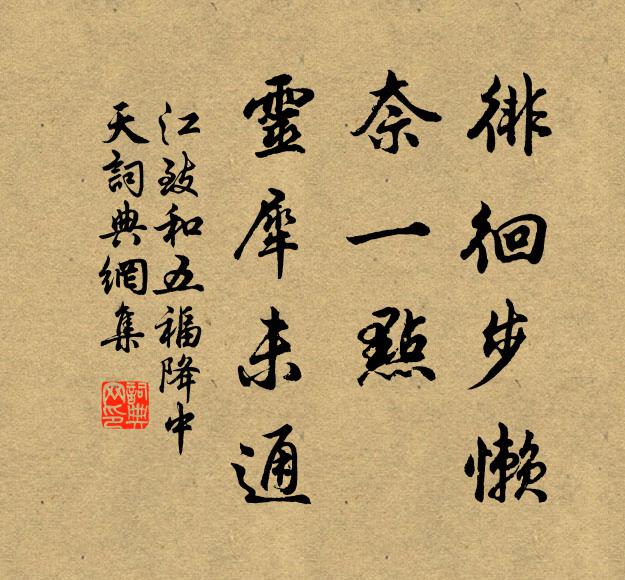 徘徊步懶
奈一點
靈犀未通
江致和五福降中
天詞典網集
詞典
网印